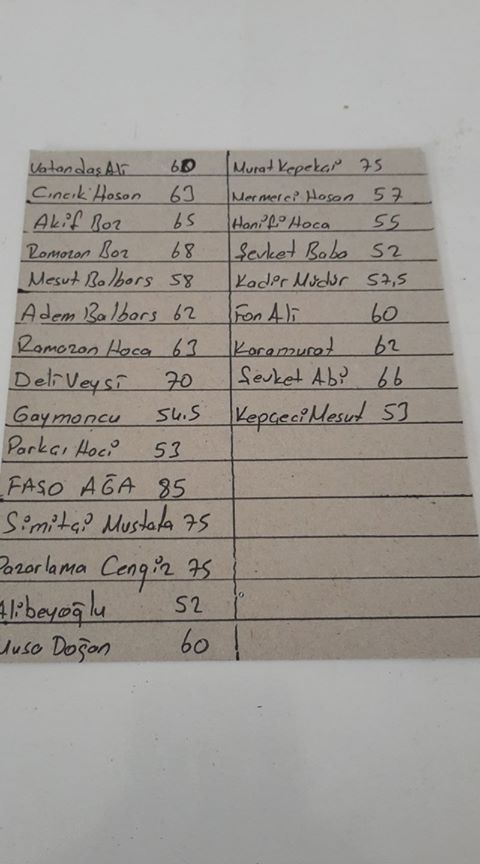 Vatandaş Ali 60
Cıncık Hasan 63
Akif Boz 65
Ramazan Boz 68
Mesut Balbars 58
Adem Balbars 62
Ramazan Hoca 63
Deli Veysi 70
Gaymancu 54,5
Parkçı Hoci 53
FASO AĞA 85
Simitçi Mustafa 75
Pazarlama Cengiz 75
Alibeyoğlu 52
Musa Doğan 60
Murat Kepekçi 75
Mermerci Hasan 57
Hanifi Hoca 55
Şevket Baba 52
Kadir Müdür 57,5
Fon Ali 60
Karamurat 62
Şevket Abi 66
Kepçeci Mesut 53